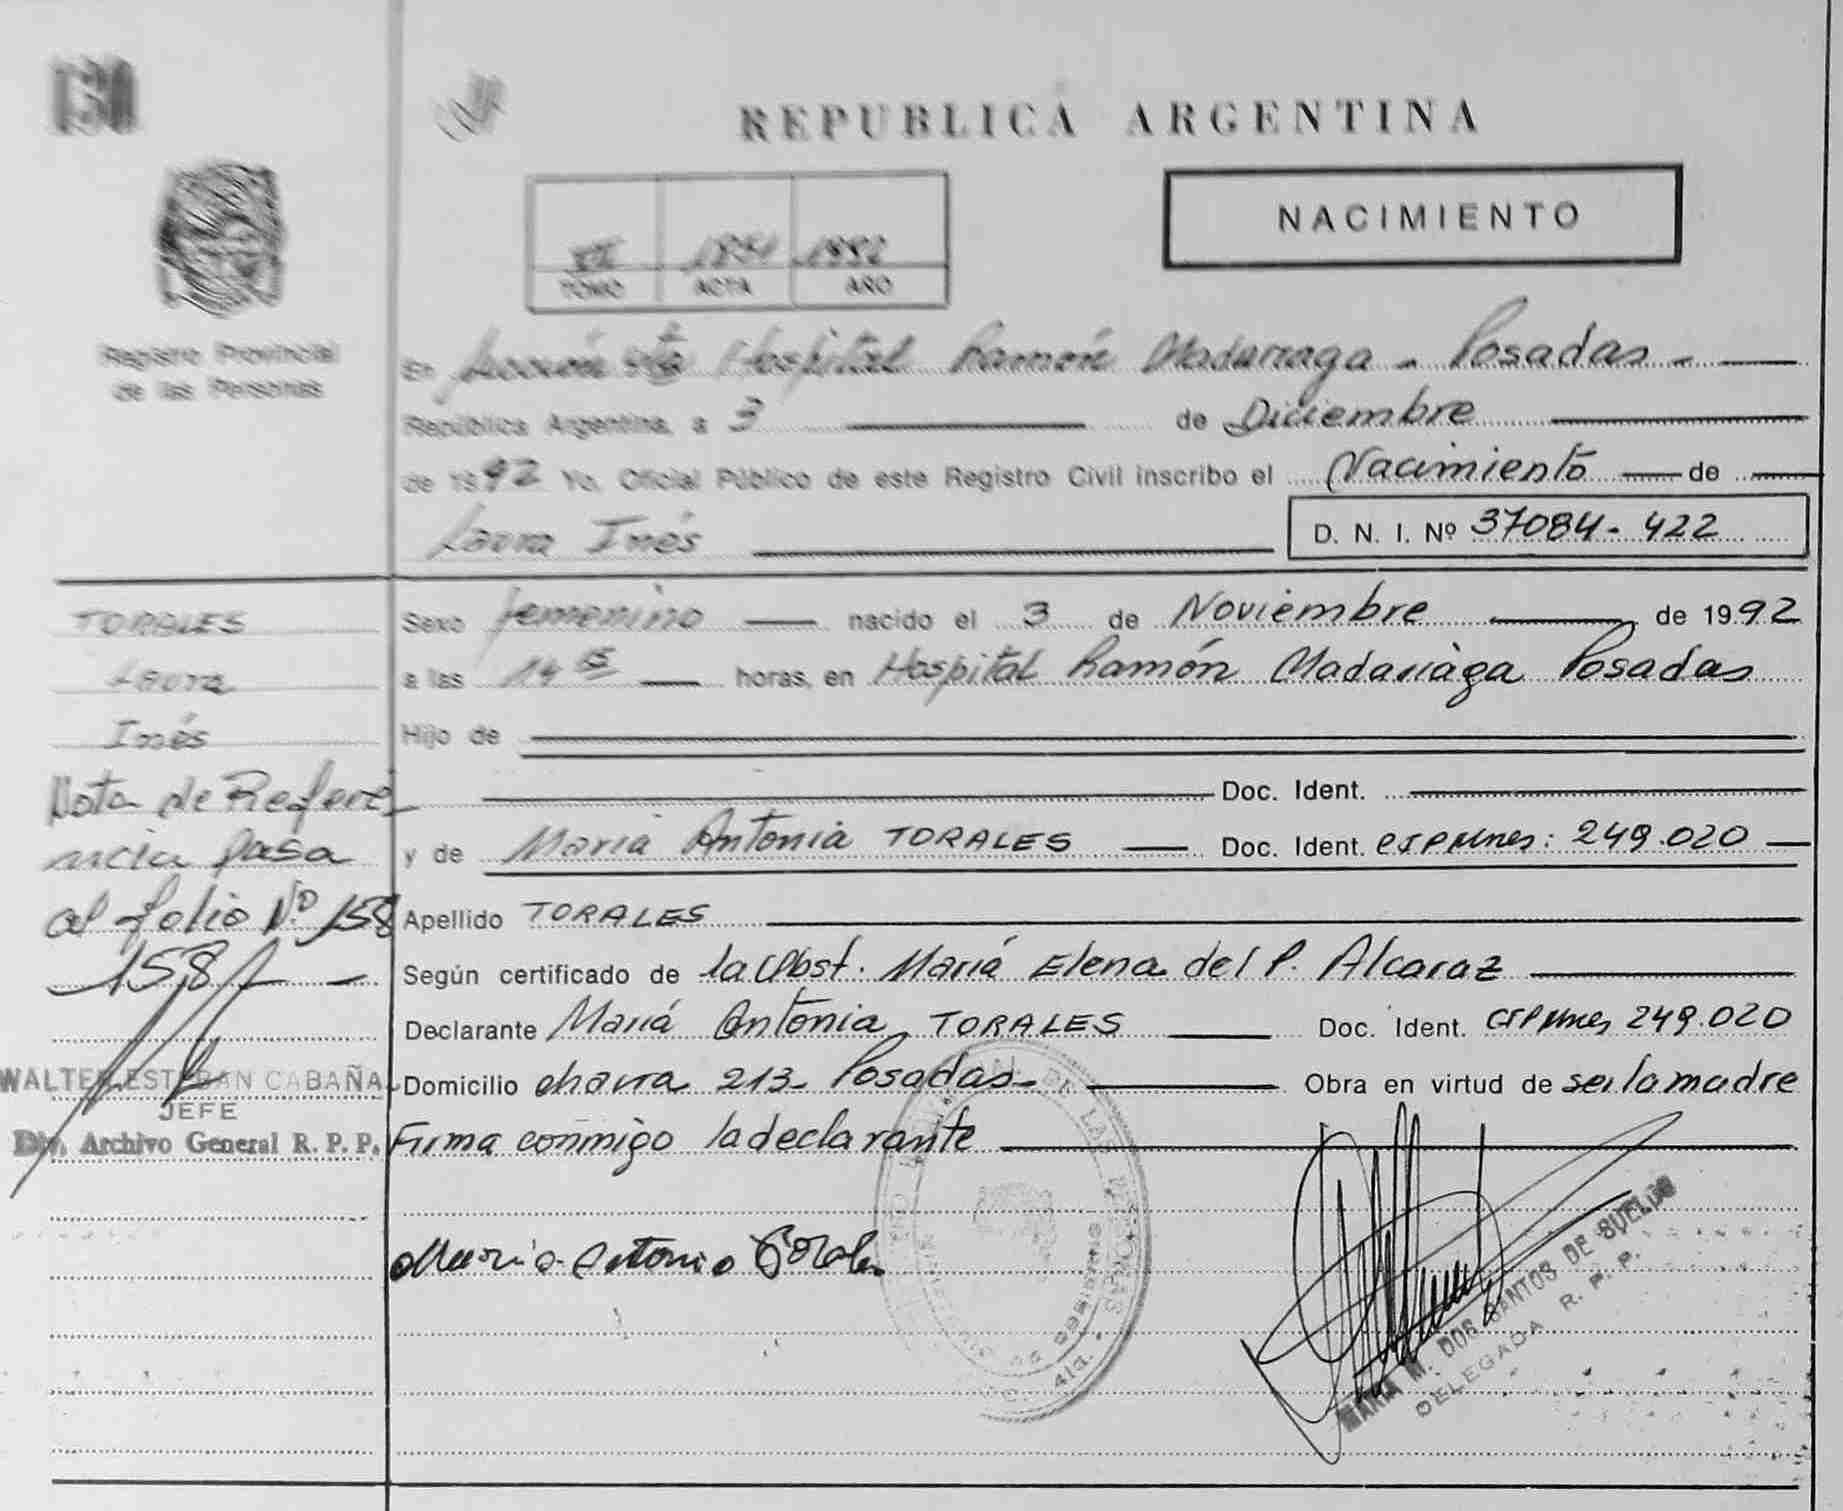 130
REPUBLICA ARGENTINA
NACIMIENTO
1992
TOMO ACTA AÑO
Registro Provincial
de las Personas
En Sección 4ta Hospital Ramón Madariaga - Posadas -
República Argentina, a 3 de Diciembre
de 1992 Yo, Oficial Público de este Registro Civil inscribo el Nacimiento de
Laura Inés
D. N. I. Nº 37084-422
TORALES
Laura
Inés
Nota de Referen
ncia pasa
al folio Nº 158
158
WALTER ESTEBAN CABAÑA
JEFE
Div. Archivo General R. P. P.
Sexo femenino nacido el 3 de Noviembre de 1992
a las 14 horas, en Hospital Ramón Madariaga Posadas
Hijo de
Doc. Ident.
y de María Antonia TORALES Doc. Ident. 249.020
Apellido TORALES
Según certificado de la Obst. María Elena del P. Alcaraz
Declarante María Antonia TORALES Doc. Ident. 249.020
Domicilio chacra 213- Posadas- Obra en virtud de ser la madre
Firma conmigo la declarante
Maria Antonia Torales
DE LAS PERSONAS
M. DOS SANTOS DE SUELDO
DELEGADA R. P. P.